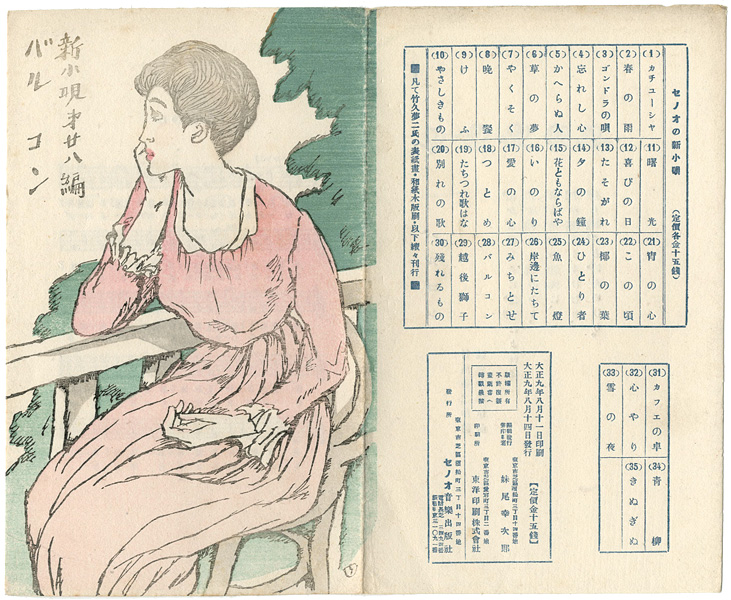 新小唄才廿八編
バルコン
セノオの新小唄
(定價各金十五錢)
(1)カチユーシヤ
(2)春の雨
(3)ゴンドラの唄
(4)忘れし心
(5)かへらぬ人
(6)草の夢
(7)やくそく
(8)晩鬟
(9)けふ
(10)やさしきもの
(11)曙光
(12)喜びの日
(13)たそがれ
(14)夕の鐘
(15)花ともならばや
(16)いのり
(17)愛の心
(18)つとめ
(19)たちつれ歌はな
(20)別れの歌
(21)宵の心
(22)この頃
(23)椰の葉
(24)ひとり者
(25)魚燈
(26)岸邊にたちて
(27)みちとせ
(28)バルコン
(29)越後獅子
(30)殘れるもの
凡て竹久夢二氏の表紙畫・和紙木版刷・以下續々刊行
(31)カフエの卓
(32)心やり
(33)雪の夜
(34)青柳
(35)きぬぎぬ
大正九年八月十一日印刷
大正九年八月十四日發行
【定價金十五錢】
版權所有
不許複製
妹尾幸次郎
印刷所
東洋印刷株式會社
發行所
セノオ音樂出版社